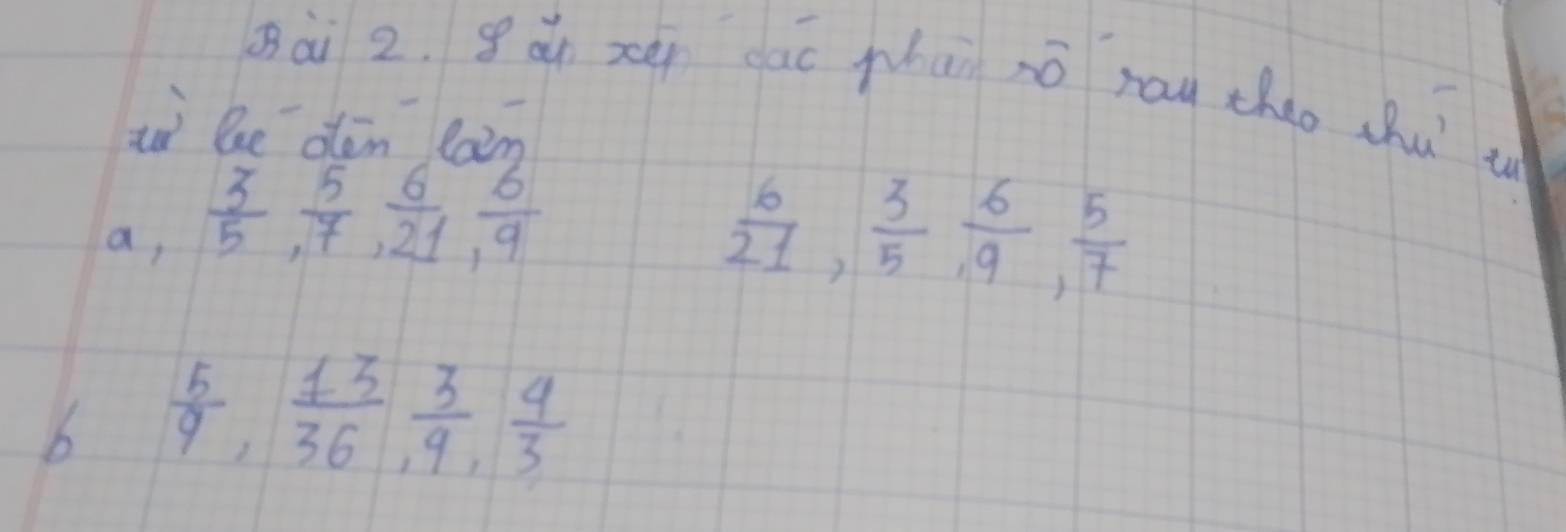 Bài 2. Sắp xếp các phân số sau theo thứ tự
từ bé đến lớn
a, 3/5, 5/7, 6/21, 6/9 6/21, 3/5, 6/9, 5/7
b 5/9, 13/36, 3/9, 4/3